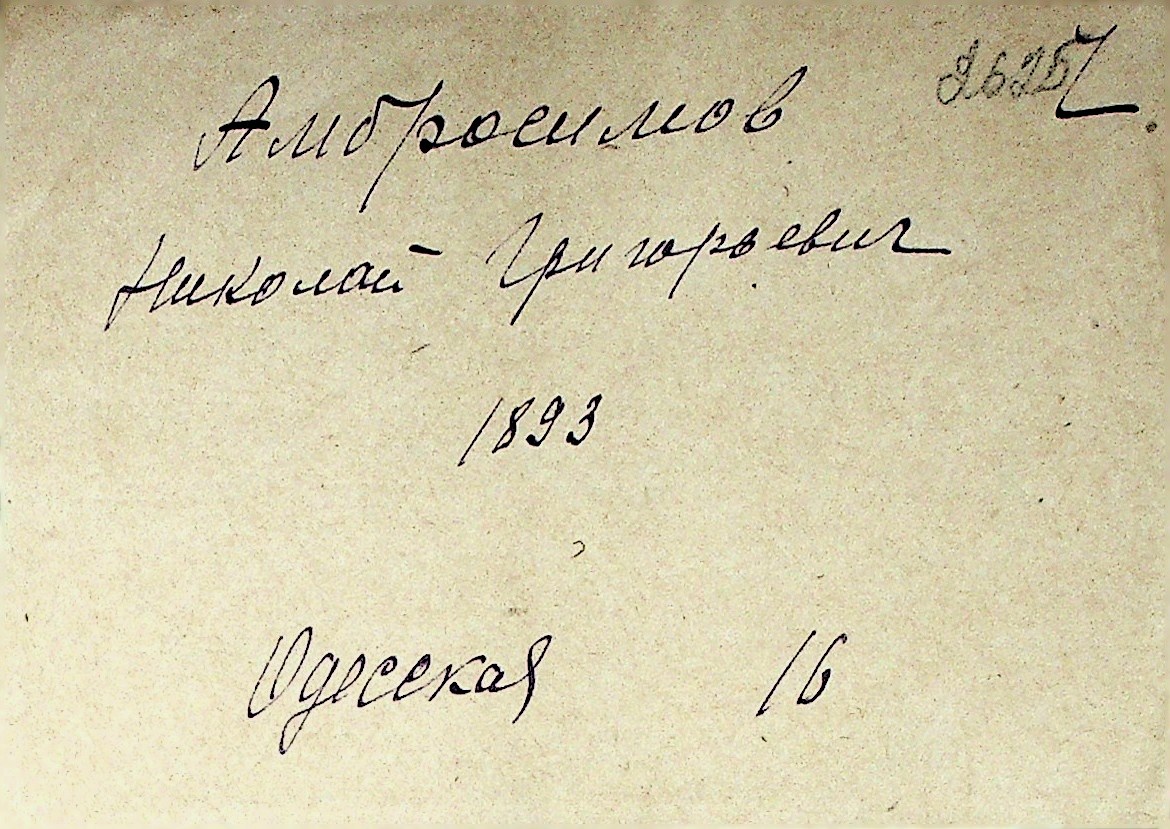 Амбросимов
Николай Григорьевич
1893
Одесская 16